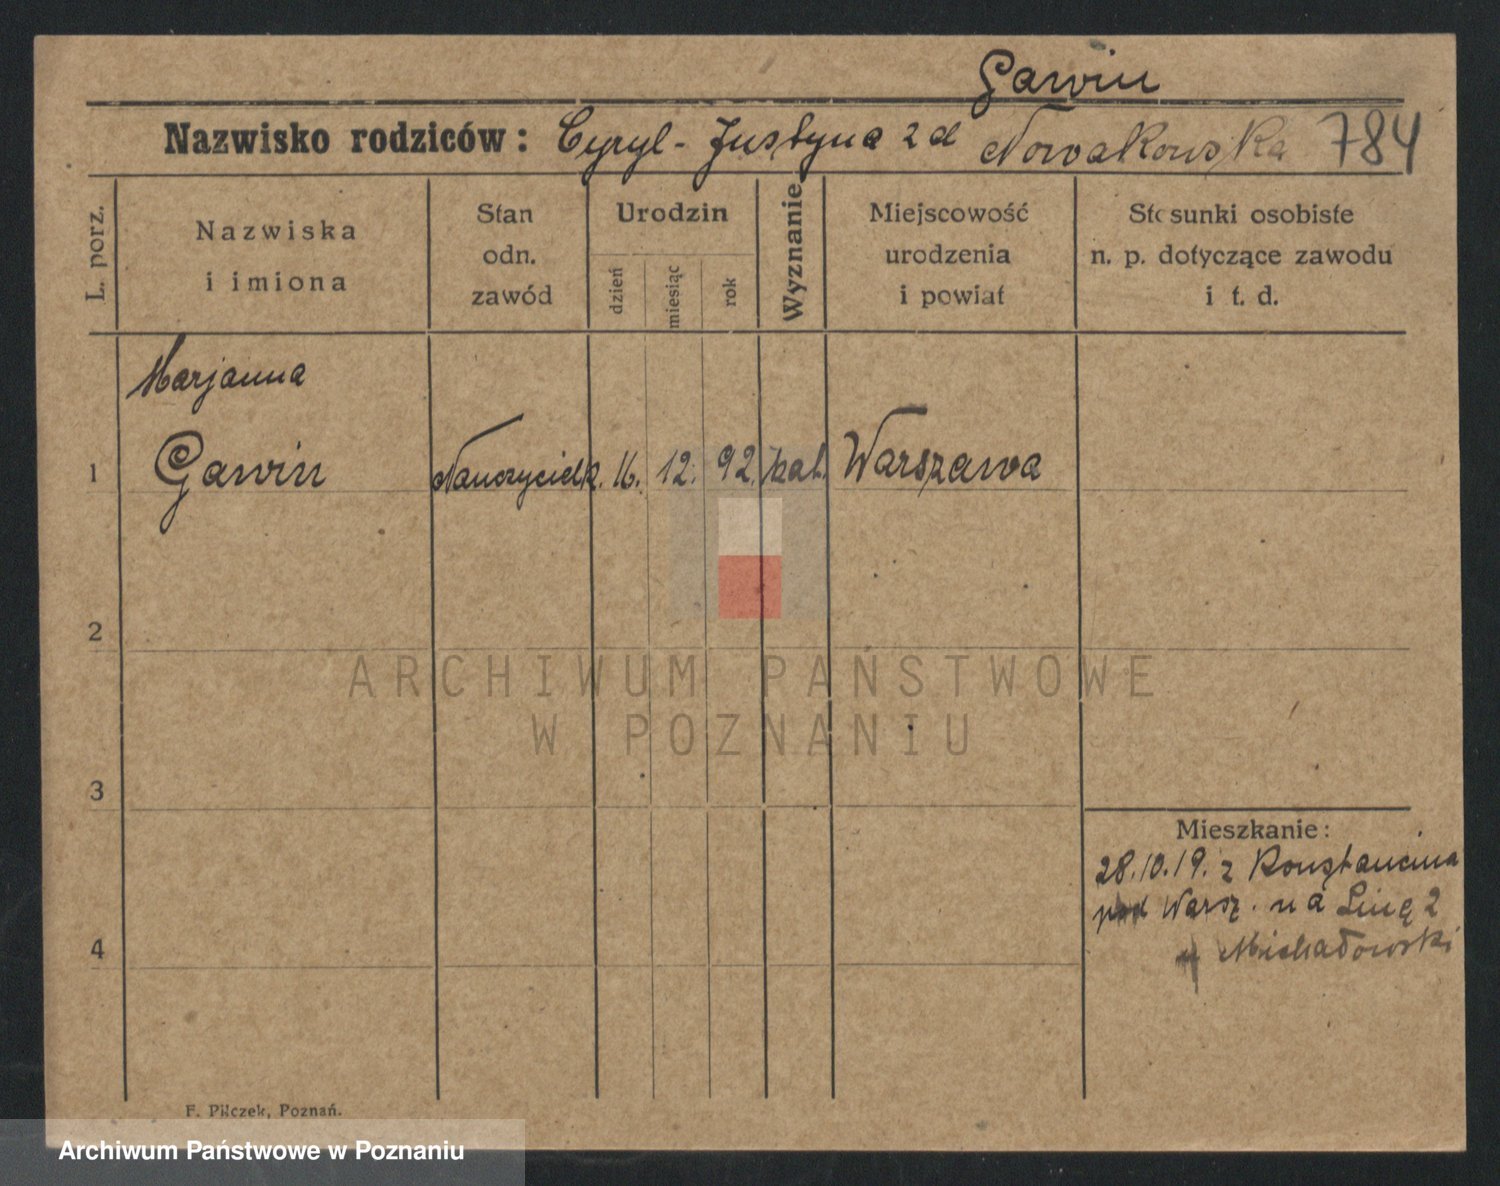 Gawin
Nazwisko rodziców: Cyryl - Justyna z d Nowakowska 784
L. porz.
Nazwiska
i imiona
Stan
odn.
zawód
Urodzin
dzień
miesiąc
rok
Wyznanie
Miejscowość
urodzenia
i powiat
Stosunki osobiste
n. p. dotyczące zawodu
i t. d.
Marjanna
1 Gawin Nauczycielk. 16. 12. 92. kat. Warszawa
2
3
4
Mieszkanie:
28.10.19. z Konstancina
pod Warsz. na
Michałowski
F. Pilczek, Poznań.
ARCHIWUM PAŃSTWOWE
W POZNANIU
Archiwum Państwowe w Poznaniu